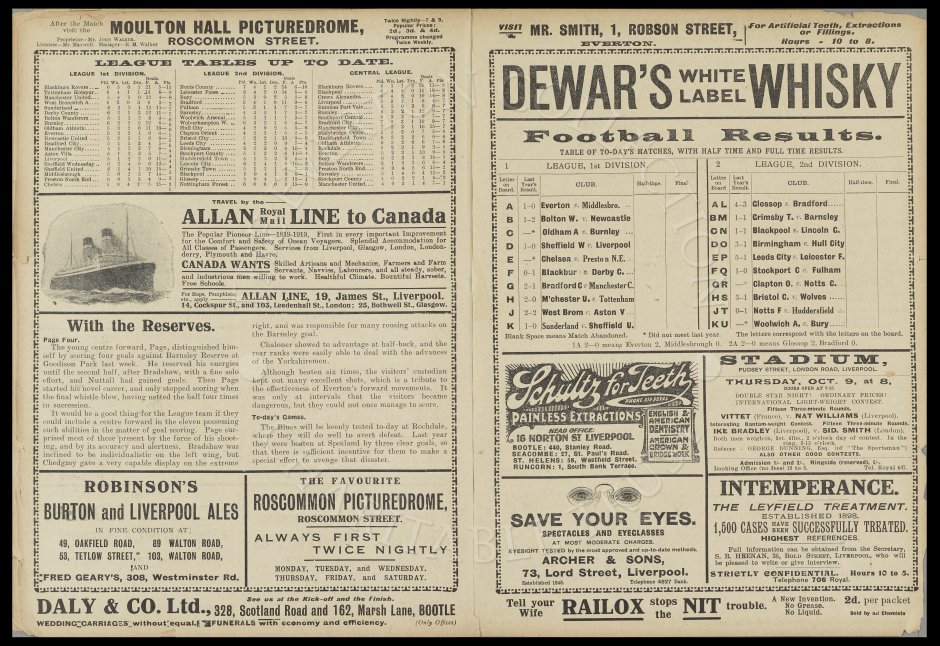 After the Match
visit the
MOULTON HALL PICTUREDROME,
ROSCOMMON STREET.
Twice Nightly—7 & 9.
Popular Prices:
2d., 3d. & 4d.
Programme changed
Twice Weekly.
Proprietor—Mr. John Walker.
Licensee—Mr. Maxwell. Manager—E. M. Walker
LEAGUE TABLES UP TO DATE.
LEAGUE 1st DIVISION.
Blackburn Rovers
Tottenham Hotspur
Manchester United
West Bromwich A
Sunderland
Derby County
Bolton Wanderers
Burnley
Oldham Athletic
Everton
Newcastle United
Bradford City
Manchester City
Aston Villa
Liverpool
Sheffield Wednesday
Sheffield United
Middlesbrough
Preston North End
Chelsea
LEAGUE 2nd DIVISION.
Notts County
Leicester Fosse
Bury
Bradford
Fulham
Barnsley
Woolwich Arsenal
Wolverhampton W
Hull City
Clapton Orient
Bristol City
Leeds City
Birmingham
Stockport County
Huddersfield Town
Lincoln City
Grimsby Town
Blackpool
Glossop
Nottingham Forest
CENTRAL LEAGUE.
Blackburn Rovers
Blackpool
Everton
Liverpool
Burslem Port Vale
Burnley
Southport Central
Bradford City
Manchester City
Stalybridge Celtic
Huddersfield Town
Oldham Athletic
Rochdale
Stockport County
Bury
Bolton Wanderers
Preston North End
Barnsley
Stockport County
Manchester United
TRAVEL by the
ALLAN Royal Mail LINE to Canada
The Popular Pioneer Line—1819-1913. First in every important Improvement
for the Comfort and Safety of Ocean Voyagers. Splendid Accommodation for
All Classes of Passengers. Services from Liverpool, Glasgow, London, London-
derry, Plymouth and Havre.
CANADA WANTS Skilled Artisans and Mechanics, Farmers and Farm
Servants, Navvies, Labourers, and all steady, sober,
and industrious men willing to work. Healthful Climate. Bountiful Harvests.
Free Schools.
For Maps, Pamphlets, etc., apply ALLAN LINE, 19, James St., Liverpool.
14, Cockspur St., and 103, Leadenhall St., London; 25, Bothwell St., Glasgow.
With the Reserves.
Page Four.
The young centre forward, Page, distinguished him-
self by scoring four goals against Barnsley Reserve at
Goodison Park last week. He reserved his energies
until the second half, after Bradshaw, with a fine solo
effort, and Nuttall had gained goals. Then Page
started his novel career, and only stopped scoring when
the final whistle blew, having netted the ball four times
in succession.
It would be a good thing for the League team if they
could include a centre forward in the eleven possessing
such abilities in the matter of goal scoring. Page sur-
prised most of those present by the force of his shoot-
ing, and by its accuracy and alertness. Bradshaw was
inclined to be individualistic on the left wing, but
Chedgzay gave a very capable display on the extreme
right, and was responsible for many rousing attacks on
the Barnsley goal.
Chaloner showed to advantage at half-back, and the
rear ranks were easily able to deal with the advances
of the Yorkshiremen.
Although beaten six times, the visitors' custodian
kept out many excellent shots, which is a tribute to
the effectiveness of Everton's forward movements. It
was only at intervals that the visitors became
dangerous, but they could not once manage to score.
To-day's Games.
The Blues will be keenly tested to-day at Rochdale,
where they will do well to avert defeat. Last year
they were beaten at Spotland by three clear goals, so
that there is sufficient incentive for them to make a
special effort to avenge that disaster.
ROBINSON'S
BURTON and LIVERPOOL ALES
IN FINE CONDITION AT
49, OAKFIELD ROAD, 89 WALTON ROAD,
53, TETLOW STREET, 103, WALTON ROAD,
AND
FRED GEARY'S, 308, Westminster Rd.
THE FAVOURITE
ROSCOMMON PICTUREDROME,
ROSCOMMON STREET.
ALWAYS FIRST
TWICE NIGHTLY
MONDAY, TUESDAY, and WEDNESDAY.
THURSDAY, FRIDAY, and SATURDAY.
DALY & CO. Ltd., See us at the Kick-off and the Finish.
328, Scotland Road and 162, Marsh Lane, BOOTLE
WEDDING CARRIAGES without equal! FUNERALS with economy and efficiency. (Only Offices)
VISIT MR. SMITH, 1, ROBSON STREET,
EVERTON.
For Artificial Teeth, Extractions
or Fillings.
Hours - 10 to 8.
DEWAR'S WHITE LABEL WHISKY
Football Results.
TABLE OF TO-DAY'S MATCHES, WITH HALF TIME AND FULL TIME RESULTS.
1 LEAGUE, 1st DIVISION.
Letter on Board. Last Year's Result. CLUB. Half-time. Final
A 1-0 Everton v. Middlesbro.
B 1-2 Bolton W. v Newcastle
C —* Oldham A v Burnley
D 1-0 Sheffield W v Liverpool
E —* Chelsea v. Preston N.E.
F 0-1 Blackbur v. Derby C.
G 2-1 Bradford C v Manchester C.
H 2-0 M'chester U v Tottenham
J 2-2 West Brom v Aston V
K 1-0 Sunderland v Sheffield U.
Blank Space means Match Abandoned. * Did not meet last year.
2 LEAGUE, 2nd DIVISION.
Letter on Board Last Year's Result. CLUB. Half-time. Final.
AL 4-3 Glossop v. Bradford
BM 1-1 Grimsby T. v Barnsley
CN 1-1 Blackpool v. Lincoln C.
DO 3-1 Birmingham v. Hull City
EP 5-1 Leeds City v. Leicester F.
FQ 1-0 Stockport C v Fulham
GR —* Clapton O. v Notts C.
HS 3-1 Bristol C. v Wolves
JT 0-1 Notts F v Huddersfield
KU —* Woolwich A. v Bury
The letters correspond with the letters on the board.
1A 2—0 means Everton 2, Middlesbrough 0. 2A 2—0 means Glossop 2, Bradford 0.
Schultz for Teeth
PHONE 516 ROYAL
PAINLESS EXTRACTIONS
HEAD OFFICE:
16 NORTON ST LIVERPOOL.
BOOTLE: 440, Stanley Road.
SEACOMBE: 27, St. Paul's Road.
ST. HELENS: 58, Westfield Street.
RUNCORN: 1, South Bank Terrace.
ENGLISH & AMERICAN DENTISTRY
AMERICAN CROWN & BRIDGE WORK
STADIUM,
PUDSEY STREET, LONDON ROAD, LIVERPOOL
THURSDAY, OCT. 9, at 8,
DOORS OPEN AT 7-15.
DOUBLE STAR NIGHT! ORDINARY PRICES!
INTERNATIONAL LIGHT-WEIGHT CONTEST.
Fifteen Three-minute Rounds.
VITTET (France), v. NAT WILLIAMS (Liverpool).
Interesting Bantam-weight Contest. Fifteen Three-minute Rounds.
IKE BRADLEY (Liverpool), v. SID. SMITH (London).
Both men weigh-in, 8st. 6lbs., 2 o'clock day of contest. In the
ring, 8-15 o'clock.
Referee - GEORGE DUNNING, Esq. ("The Sportsman")
ALSO OTHER GOOD CONTESTS.
Admission 1/- and 2/-. Ringside (reserved), 5/-.
Booking Office (no fees) 10 to 5. Tel. Royal 617.
SAVE YOUR EYES.
SPECTACLES AND EYEGLASSES
AT MOST MODERATE CHARGES.
EYESIGHT TESTED by the most approved and up-to-date methods.
ARCHER & SONS,
73, Lord Street, Liverpool.
Established 1848. Telephone 4927 Bank.
INTEMPERANCE.
THE LEYFIELD TREATMENT.
ESTABLISHED 1898.
1,500 CASES HAVE BEEN SUCCESSFULLY TREATED.
HIGHEST REFERENCES.
Full information can be obtained from the Secretary,
S. R. HEENAN, 35, Bold Street, LIVERPOOL, who will
be pleased to write or give interview.
STRICTLY CONFIDENTIAL. Hours 10 to 5.
Telephone 706 Royal.
Tell your Wife RAILOX stops the NIT trouble.
A New Invention.
No Grease.
No Liquid.
2d. per packet
Sold by all Chemists